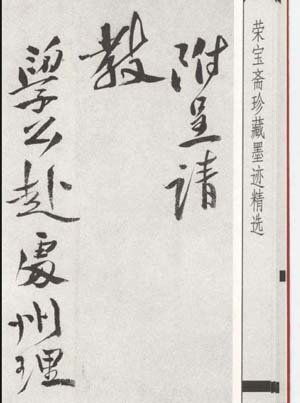 荣宝斋珍藏墨迹精选
附呈请
教
学公赴處州理